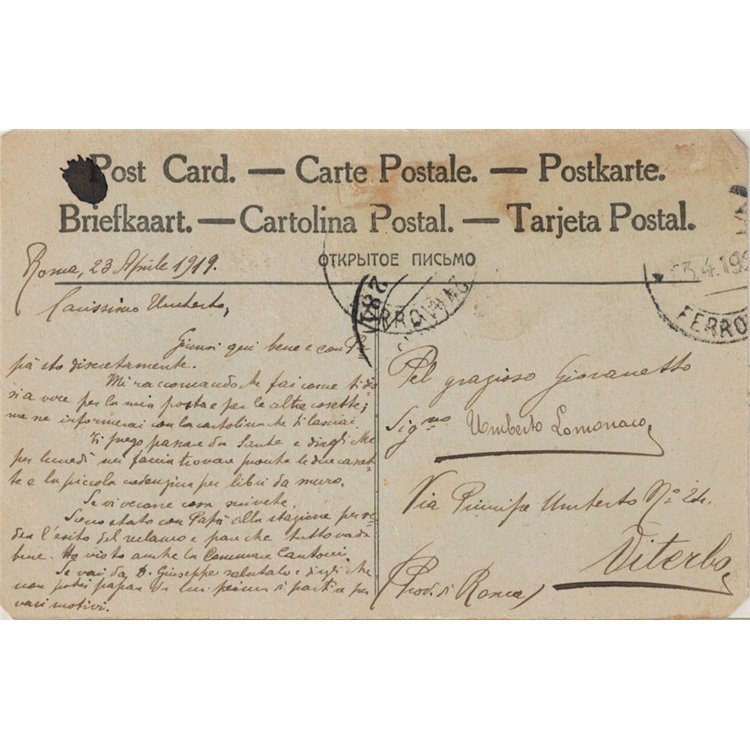 Post Card. — Carte Postale. — Postkarte.
Briefkaart. — Cartolina Postal. — Tarjeta Postal.
ОТКРЫТОЕ ПИСЬМО
Roma, 23 Aprile 1919.
Carissimo Umberto,
Giunsi qui bene e con Pa-
pà sto discretamente.
Mi raccomando che fai come ti dis-
si a voce per la mia posta e per le altre cosette;
me ne informerai con la cartolina che ti lasciai.
Ti prego passare da Sante e dirgli che
per lunedì mi faccia trovare pronte le due casset-
te e la piccola per libri da muro.
Se vi occorre cosa scrivete.
Sono stato con Papà alla stazione per ve-
der l'esito del reclamo e pare che tutto vada
bene. Ho visto anche la Commare
Se vai da D. Giuseppe salutalo e digli che
non potei da lui prima di partire per
vari motivi.
Pel grazioso Giovanetto
Sig.no Umberto Lomonaco
Via Principe Umberto No 24.
Viterbo
(Prov. di Roma)
FERROVIA
3.4.19
FERRO